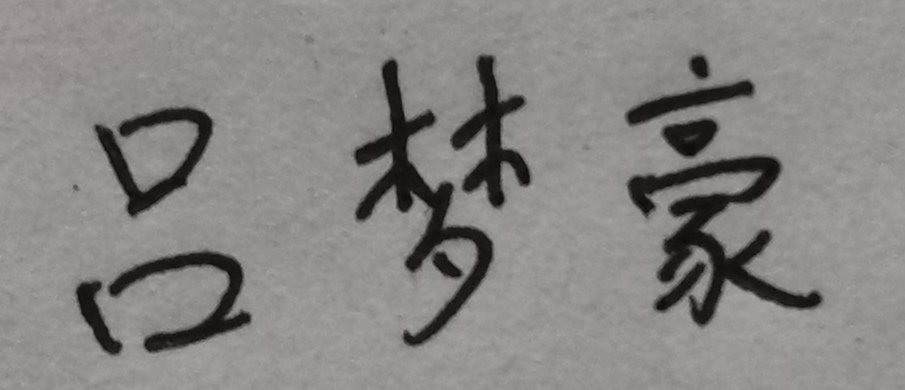 吕梦豪